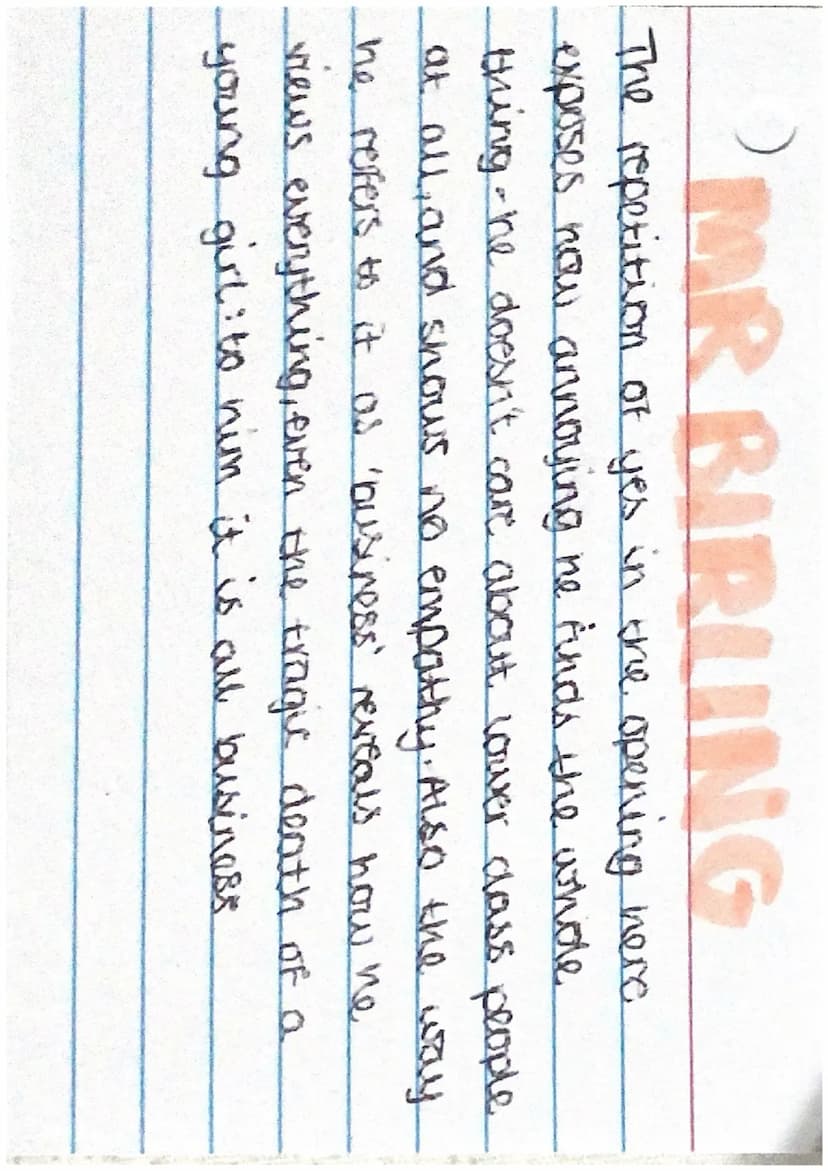 MR BIRLING
The repetition of yes in the opening here
exposes how annoying he finds the whole
thing - he doesn't care about lower class people
at all, and shows no empathy. Also the way
he refers to it as 'business' reveals how he
views everything, even the tragic death of a
young girl: to him it is all business